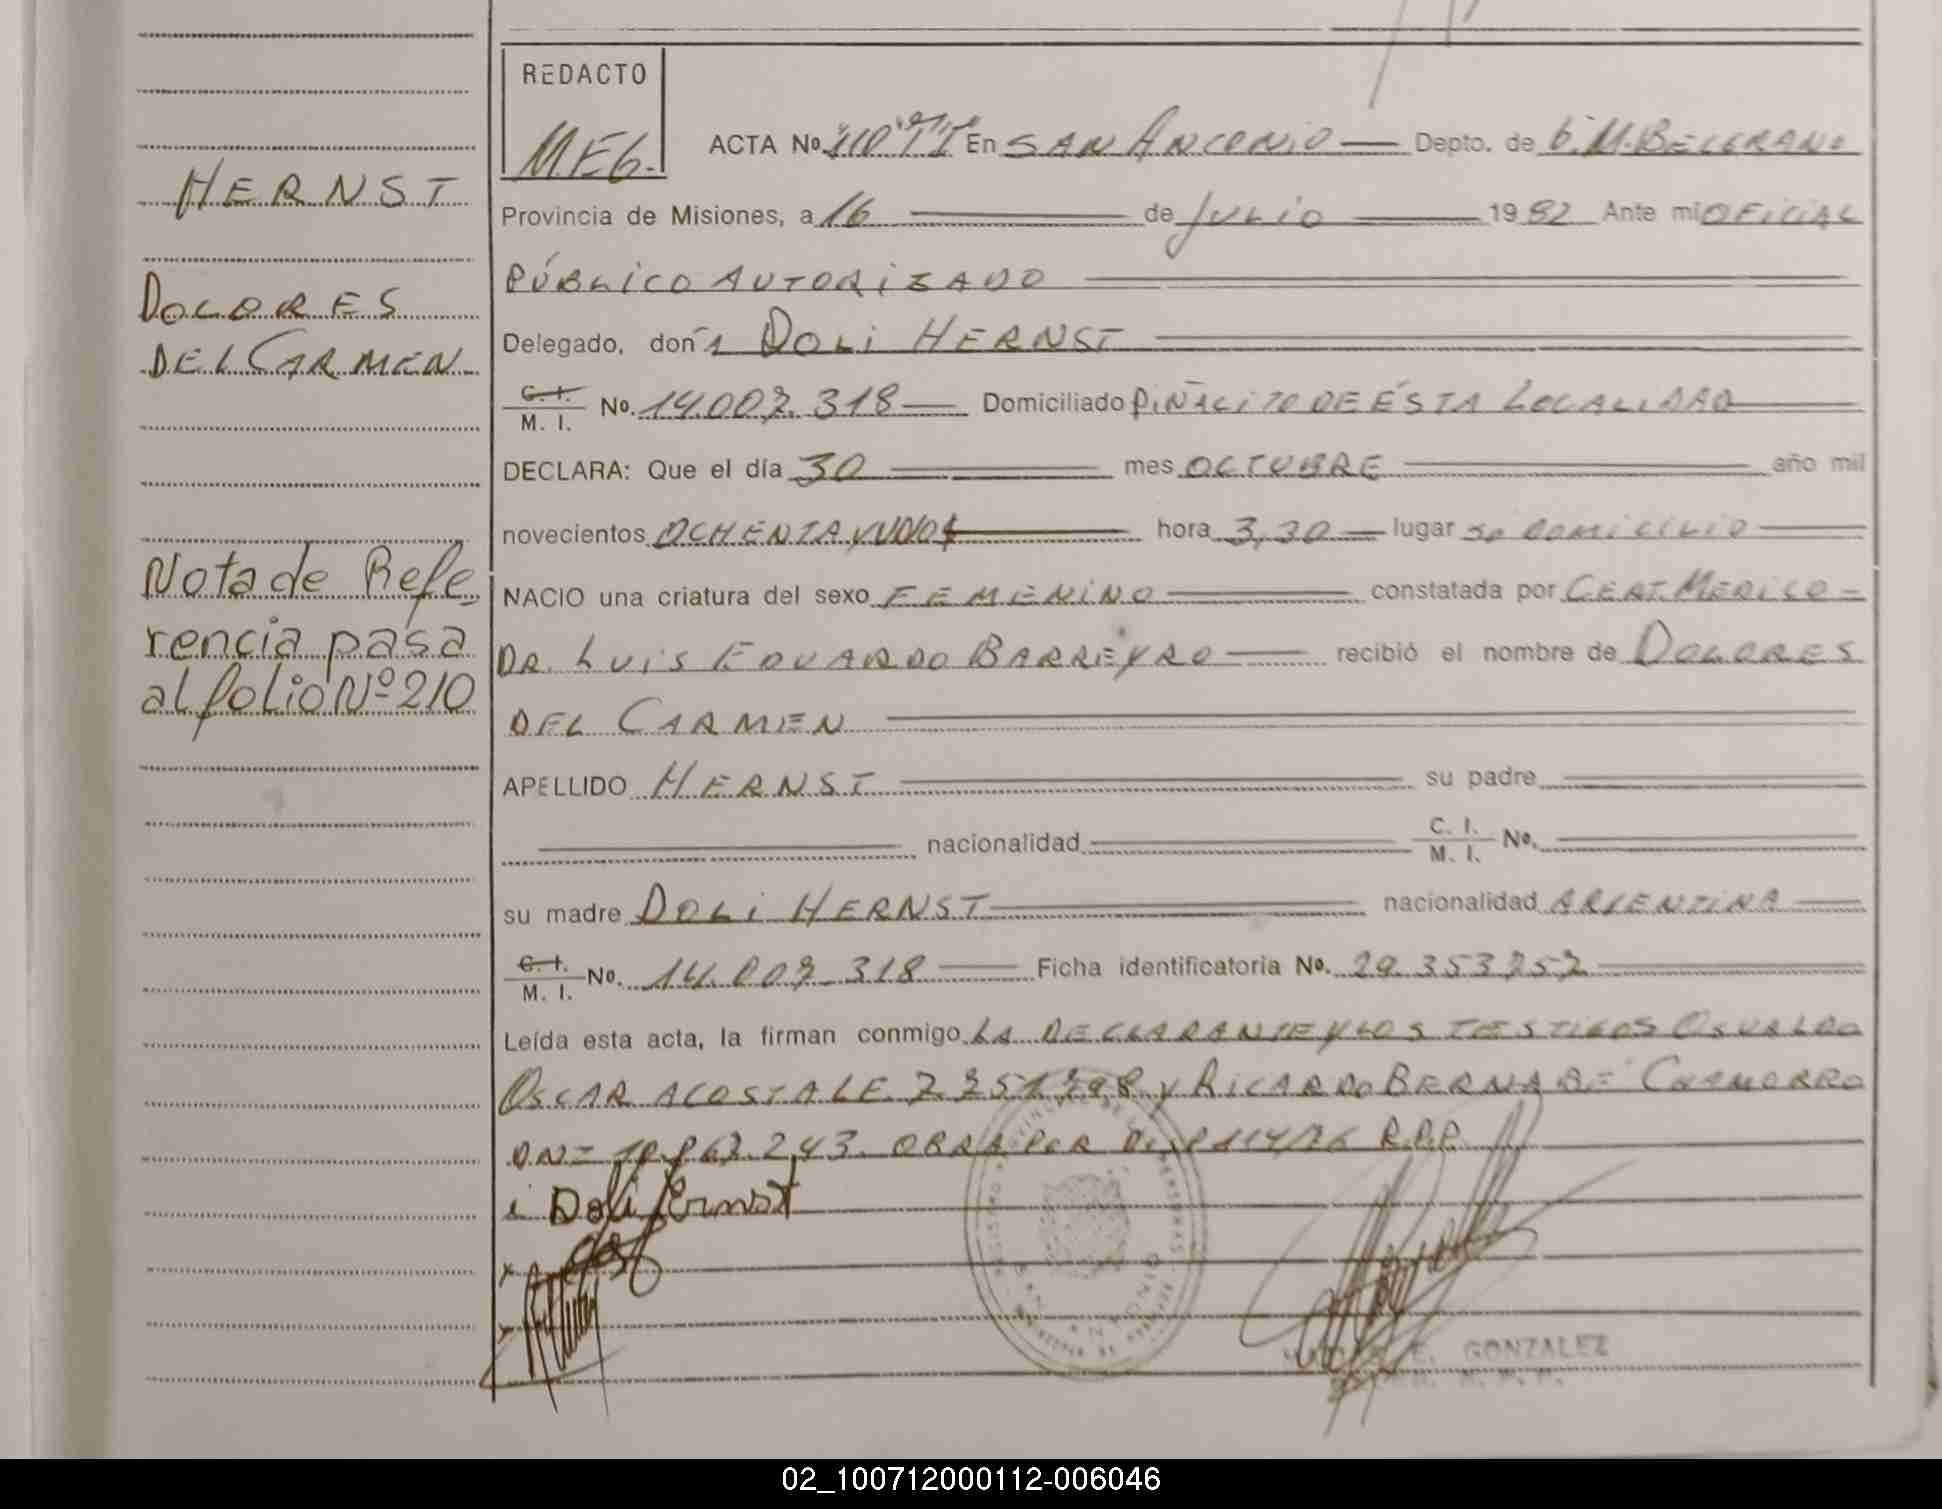 HERNST
DOLORES
DEL CARMEN
Nota de Refe-
rencia pasa
al folio Nº 210
REDACTO
M.E.G.
ACTA No. 110 "T" I En SAN ANTONIO Depto. de G. M. BELGRANO
Provincia de Misiones, a 16 de JULIO 1982 Ante mi OFICIAL
PÚBLICO AUTORIZADO
Delegado, doña DOLI HERNST
C. I. / M. I. No. 14.007.318 Domiciliado PIÑALITO DE ÉSTA LOCALIDAD
DECLARA: Que el día 30 mes OCTUBRE año mil
novecientos OCHENTA Y UNO hora 3,30 lugar SU DOMICILIO
NACIO una criatura del sexo FEMENINO constatada por CERT. MEDICO -
DR. LUIS EDUARDO BARREYRO recibió el nombre de DOLORES
DEL CARMEN
APELLIDO HERNST su padre
nacionalidad C. I. / M. I. No.
su madre DOLI HERNST nacionalidad ARGENTINA
C. I. / M. I. No. 14.007.318 Ficha identificatoria No. 29.353757
Leída esta acta, la firman conmigo LA DECLARANTE Y LOS TESTIGOS OSVALDO
OSCAR ACOSTA LE. Y RICARDO BERNABE CHAMORRO
DNI 243. OBRA POR R.P.P.
Doli Ernst
E. GONZALEZ
02_100712000112-006046